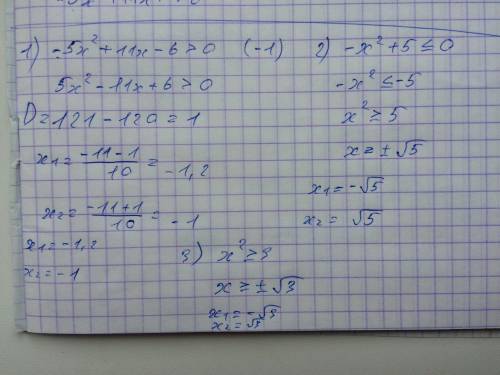 1) -5x²+11x-6>0 (-1)
5x²-11x+6>0
D=121-120=1
x₁=(-11-1)/10=-1,2
x₂=(-11+1)/10=-1
x₁=-1,2
x₂=-1
2) -x²+5≤0
-x²≤-5
x²≥5
x=±√5
x₁=-√5
x₂=√5
3) x²≥3
x≥±√3
x₁=-√3
x₂=√3